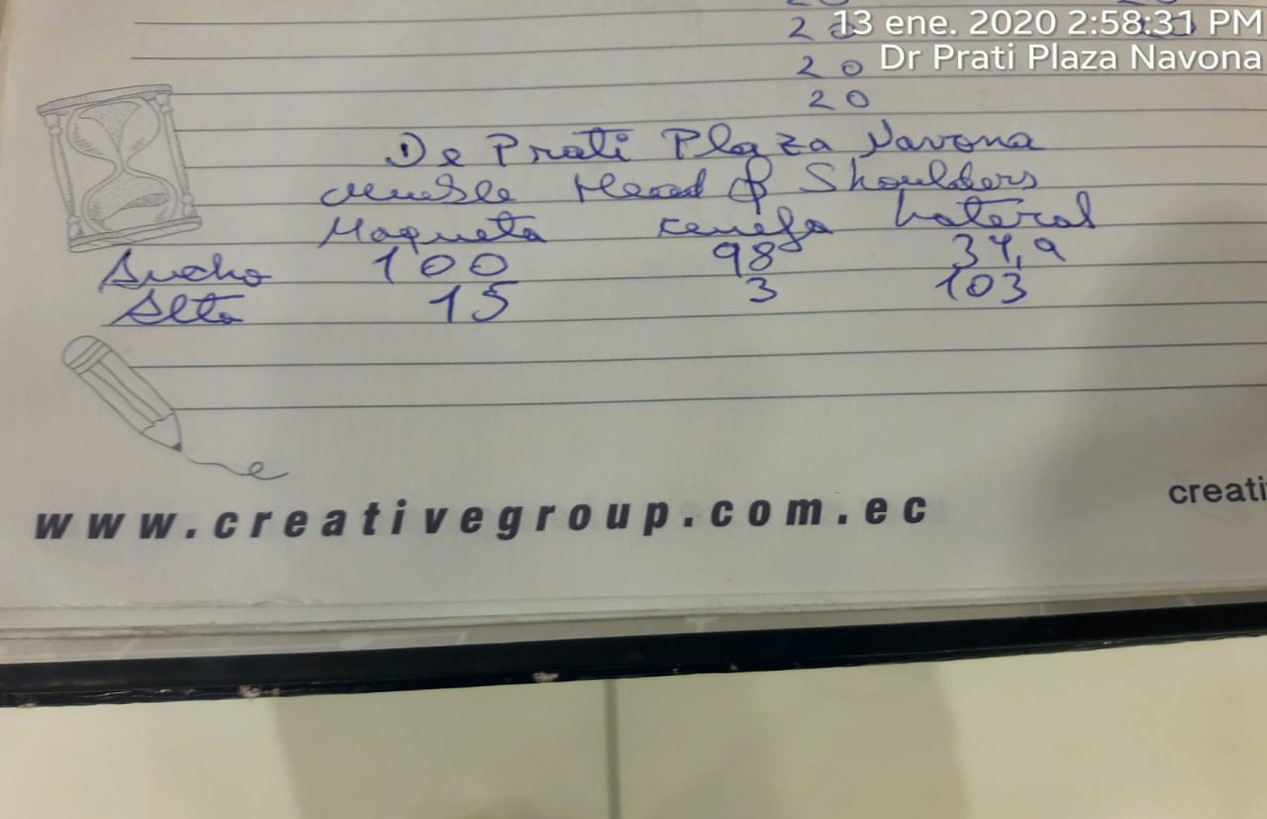 13 ene. 2020 2:58:31 PM
Dr Prati Plaza Navona
20
20
De Prati Plaza Navona
Mueble Head & Shoulders
Maqueta Cenefa Lateral
Ancho 100 98 34,9
Alto 15 3 103
www.creativegroup.com.ec
creati